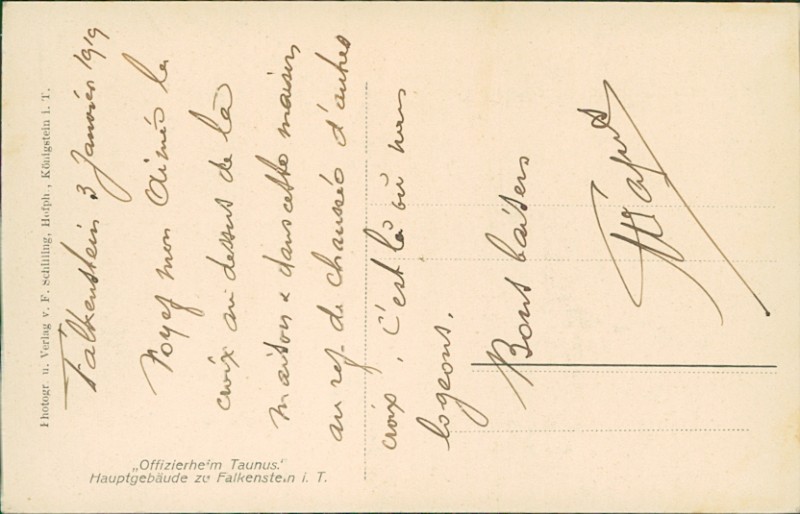 Falkenstein 3 Janvier 1919
Voyez mon Aimée la
croix au dessus de la
maison & dans cette maison
au rez-de chaussée d'autres
croix. C'est là où nous
logeons.
Bons baisers
Photogr. u. Verlag v. F. Schilling, Hofph., Königstein i. T.
„Offizierheim Taunus."
Hauptgebäude zu Falkenstein i. T.